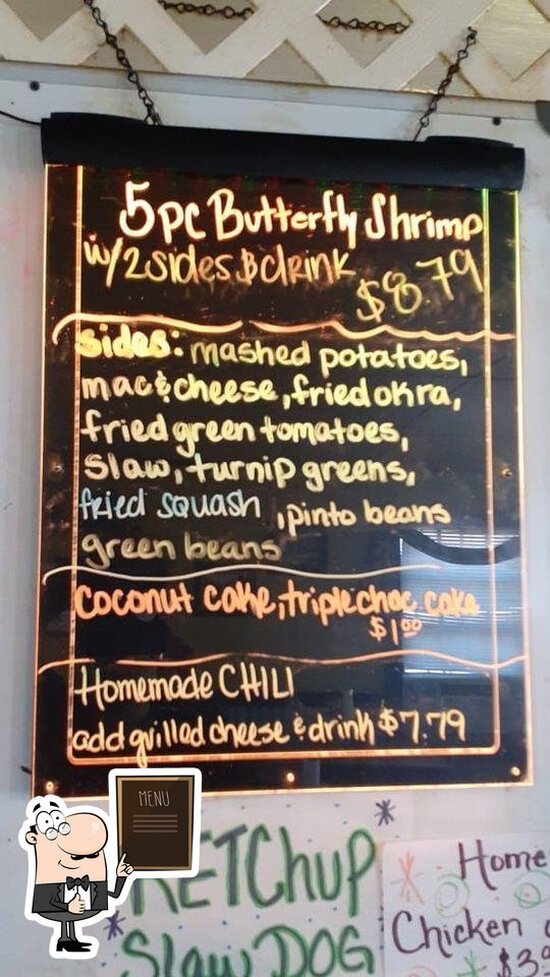 5pc Butterfly Shrimp
w/2sides & drink
$8.79
sides: mashed potatoes,
mac & cheese, fried okra,
fried green tomatoes,
Slaw, turnip greens,
fried squash, pinto beans
green beans
coconut cake, triple choc. cake
$1.00
Homemade CHILI
add grilled cheese & drink $7.79
MENU
KETChuP
Slaw DOG
Home
Chicken
$3